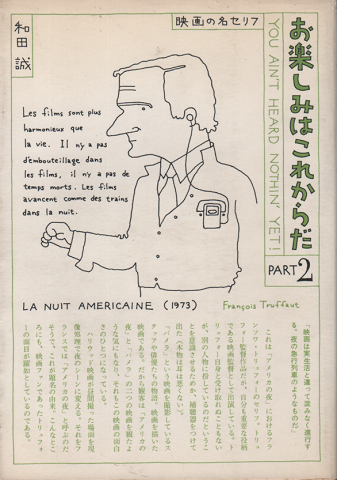 映画の名セリフ
和田誠
お楽しみはこれからだ
YOU AIN'T HEARD NOTHIN' YET!
PART2
Les films sont plus
harmonieux que
la vie. Il n'y a pas
d'embouteillage dans
les films, il n'y a pas de
temps morts. Les films
avancent comme des trains
dans la nuit.
LA NUIT AMERICAINE (1973)
François Truffaut
「映画は実生活と違って淀みなく進行す
る。夜の急行列車のようなものだ」
これは「アメリカの夜」におけるフラ
ンソワ・トリュフォーのセリフ。トリュ
フォー監督作品だが、自分も重要な役柄
である映画監督として出演している。ト
リュフォー自身と受け取れぬこともない
が、別の人物に扮しているのだというこ
とを意識させるためか、補聴器をつけて
出た(本物は耳は悪くない)。
「パメラ」という映画を撮影しているス
タッフの物語で、映画を描いた
映画である。だから観客は「アメリカの
夜」と「パメラ」の二つの映画を観たよ
うな気にもなり、それもこの映画の面白
さのひとつになっている。
ハリウッド映画が昼間撮った場面を現
像処理で夜のシーンに変える。それをフ
ランスでは「アメリカの夜」と呼ぶのだ
そうで、これが題名の由来。こんなとこ
ろにも、映画ファンであったトリュフォ
ーの面目が躍如としているのである。